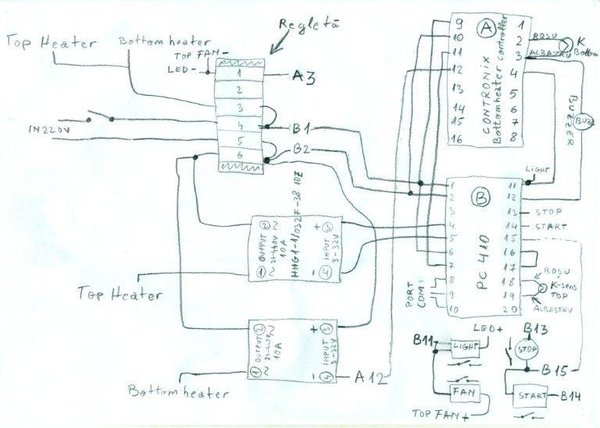 Regletă
Top Heater
Bottom heater
TOP FAN-
LED-
1
2
3
4
5
6
A3
B1
B2
IN 220V
HHG1-1/032F-38 10Z
2
OUTPUT
10A
1
+
3
INPUT
3-32V
-
4
Top Heater
2
OUTPUT
10A
1
+
3
INPUT
3-32V
-
4
A12
Bottom heater
A
CONTRONIX
Bottomheater controller
9
10
11
12
13
14
15
16
1
2
3
4
5
6
7
8
ROSU
ALBASTRU
K
Bottom
BUZZER
LIGHT
B
PC 410
1
2
3
4
5
6
7
8
9
10
11
12
13
14
15
16
17
18
19
20
STOP
START
ROSU
K-sens
TOP
ALBASTRU
PORT
COM
LED+
B11
LIGHT
FAN
TOP FAN+
B13
STOP
B15
START
B14